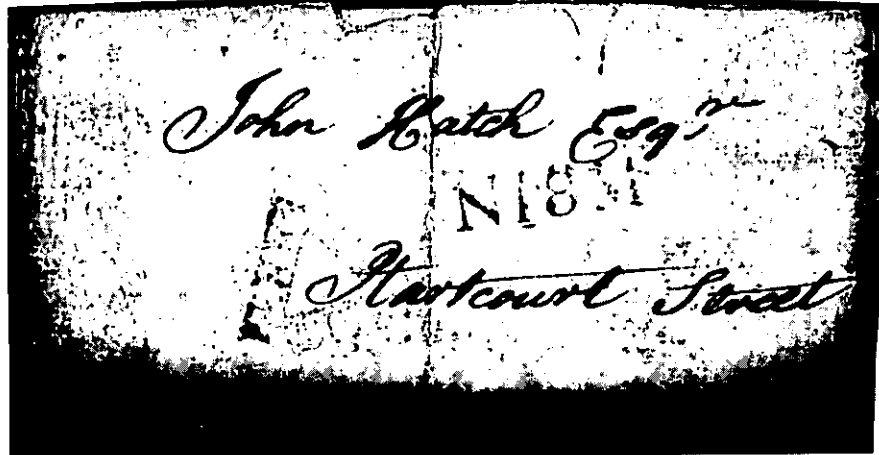 John Hatch Esqr
Hartcourt Street